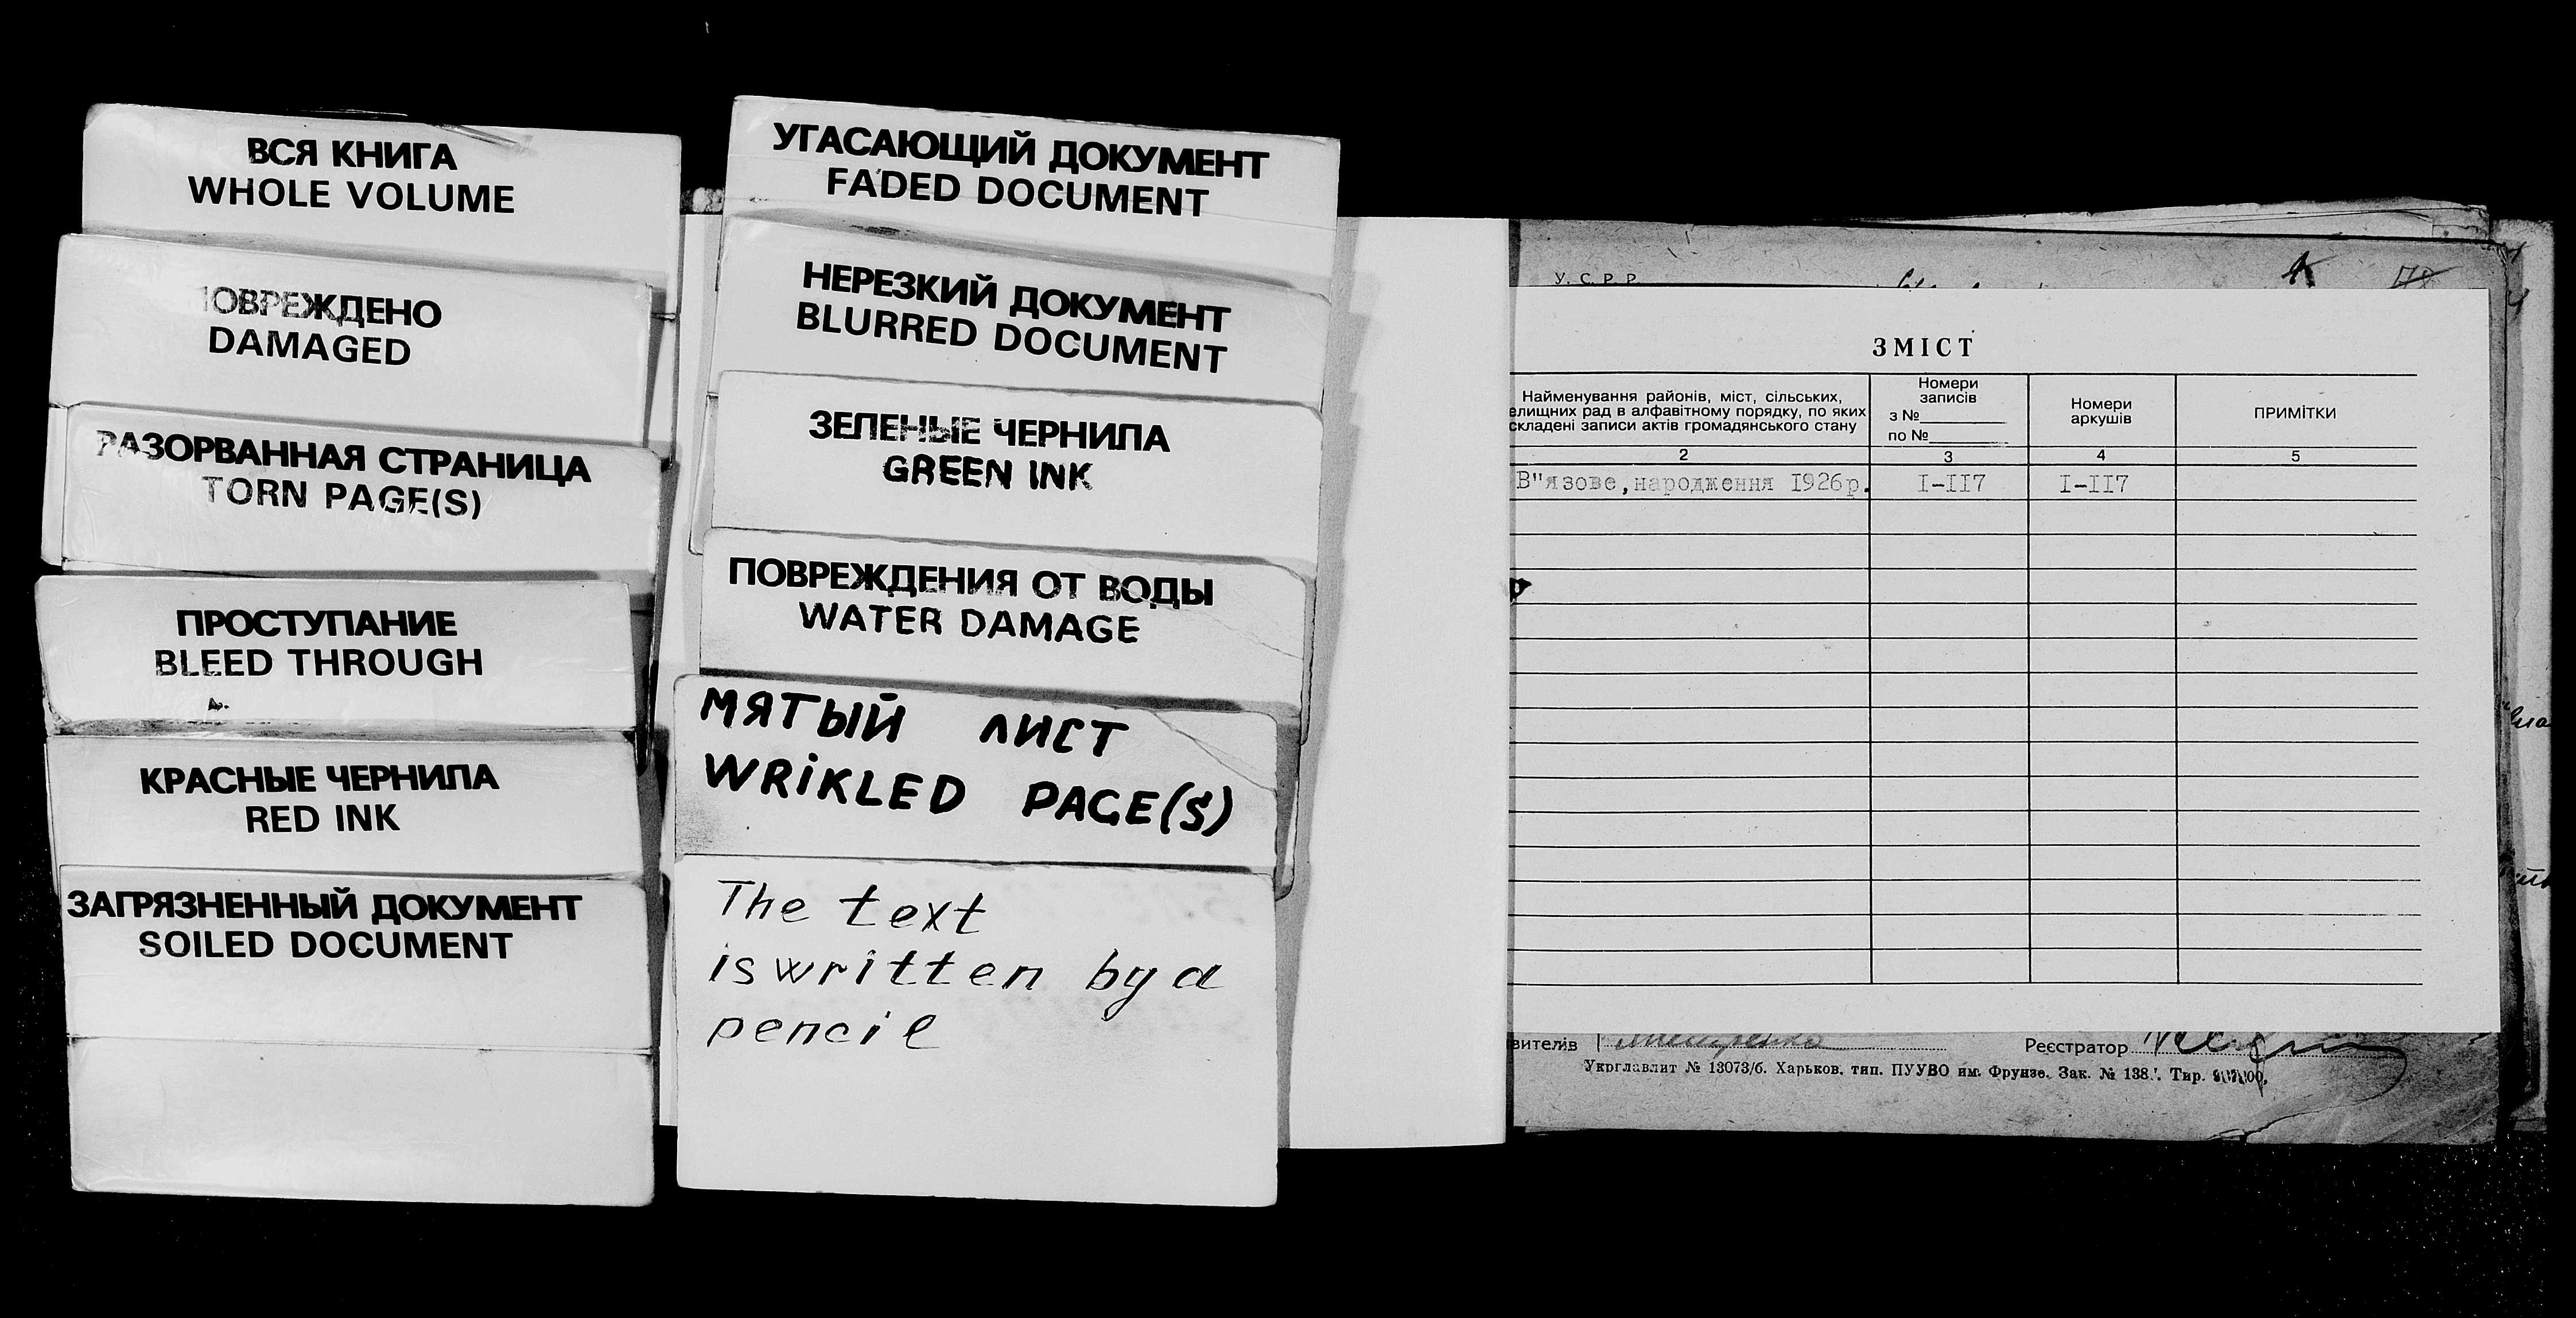 ВСЯ КНИГА
WHOLE VOLUME
ПОВРЕЖДЕНО
DAMAGED
РАЗОРВАННАЯ СТРАНИЦА
TORN PAGE(S)
ПРОСТУПАНИЕ
BLEED THROUGH
КРАСНЫЕ ЧЕРНИЛА
RED INK
ЗАГРЯЗНЕННЫЙ ДОКУМЕНТ
SOILED DOCUMENT
УГАСАЮЩИЙ ДОКУМЕНТ
FADED DOCUMENT
НЕРЕЗКИЙ ДОКУМЕНТ
BLURRED DOCUMENT
ЗЕЛЕНЫЕ ЧЕРНИЛА
GREEN INK
ПОВРЕЖДЕНИЯ ОТ ВОДЫ
WATER DAMAGE
МЯТЫЙ ЛИСТ
WRIKLED PAGE(S)
The text
is written by a
pencil
У. С. Р. Р.
ЗМІСТ
Найменування районів, міст, сільських,
елищних рад в алфавітному порядку, по яких
складені записи актів громадянського стану
Номери
записів
з №
по №
Номери
аркушів
ПРИМІТКИ
2 3 4 5
В"язове, народження 1926р. I-II7 I-II7
вителів Реєстратор
Укрглавлит № 13073/6. Харьков. тип. ПУУВО им. Фрунзе. Зак. № 138. Тир.